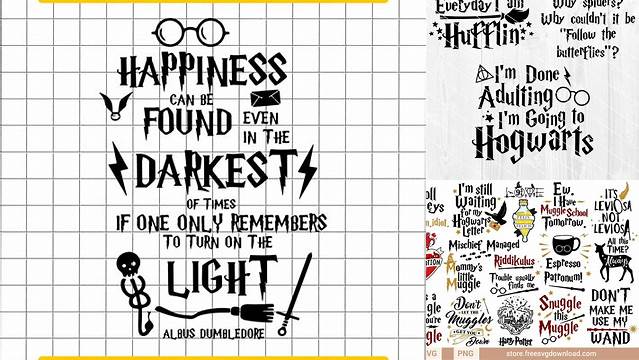 HAPPINESS
CAN BE
FOUND EVEN
IN THE
DARKEST
OF TIMES
IF ONE ONLY REMEMBERS
TO TURN ON THE
LIGHT
ALBUS DUMBLEDORE
Everyday I am
Hufflin'
Why spiders?
Why couldn't it be
"Follow the
butterflies"?
I'm Done
Adulting
I'm Going to
Hogwarts
I'm still
Waiting
For my
Hogwarts
Letter
Ew.
I Have
Muggle School
Tomorrow.
IT'S
LEVIOSA
NOT
LEVIOSA
Mischief Managed
All this
Time?
Always
Mommy's
little
Muggle
Riddikulus
Trouble usually
finds me
Espresso
Patronum!
Don't
LET THE
Muggles
GET YOU
Down
Harry Potter
Snuggle
this
Muggle
DON'T
MAKE ME
USE MY
WAND
PNG
store.freesvgdownload.com